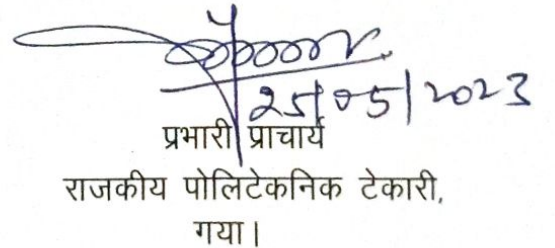 25/05/2023
प्रभारी प्राचार्य
राजकीय पोलिटेकनिक टेकारी,
गया।